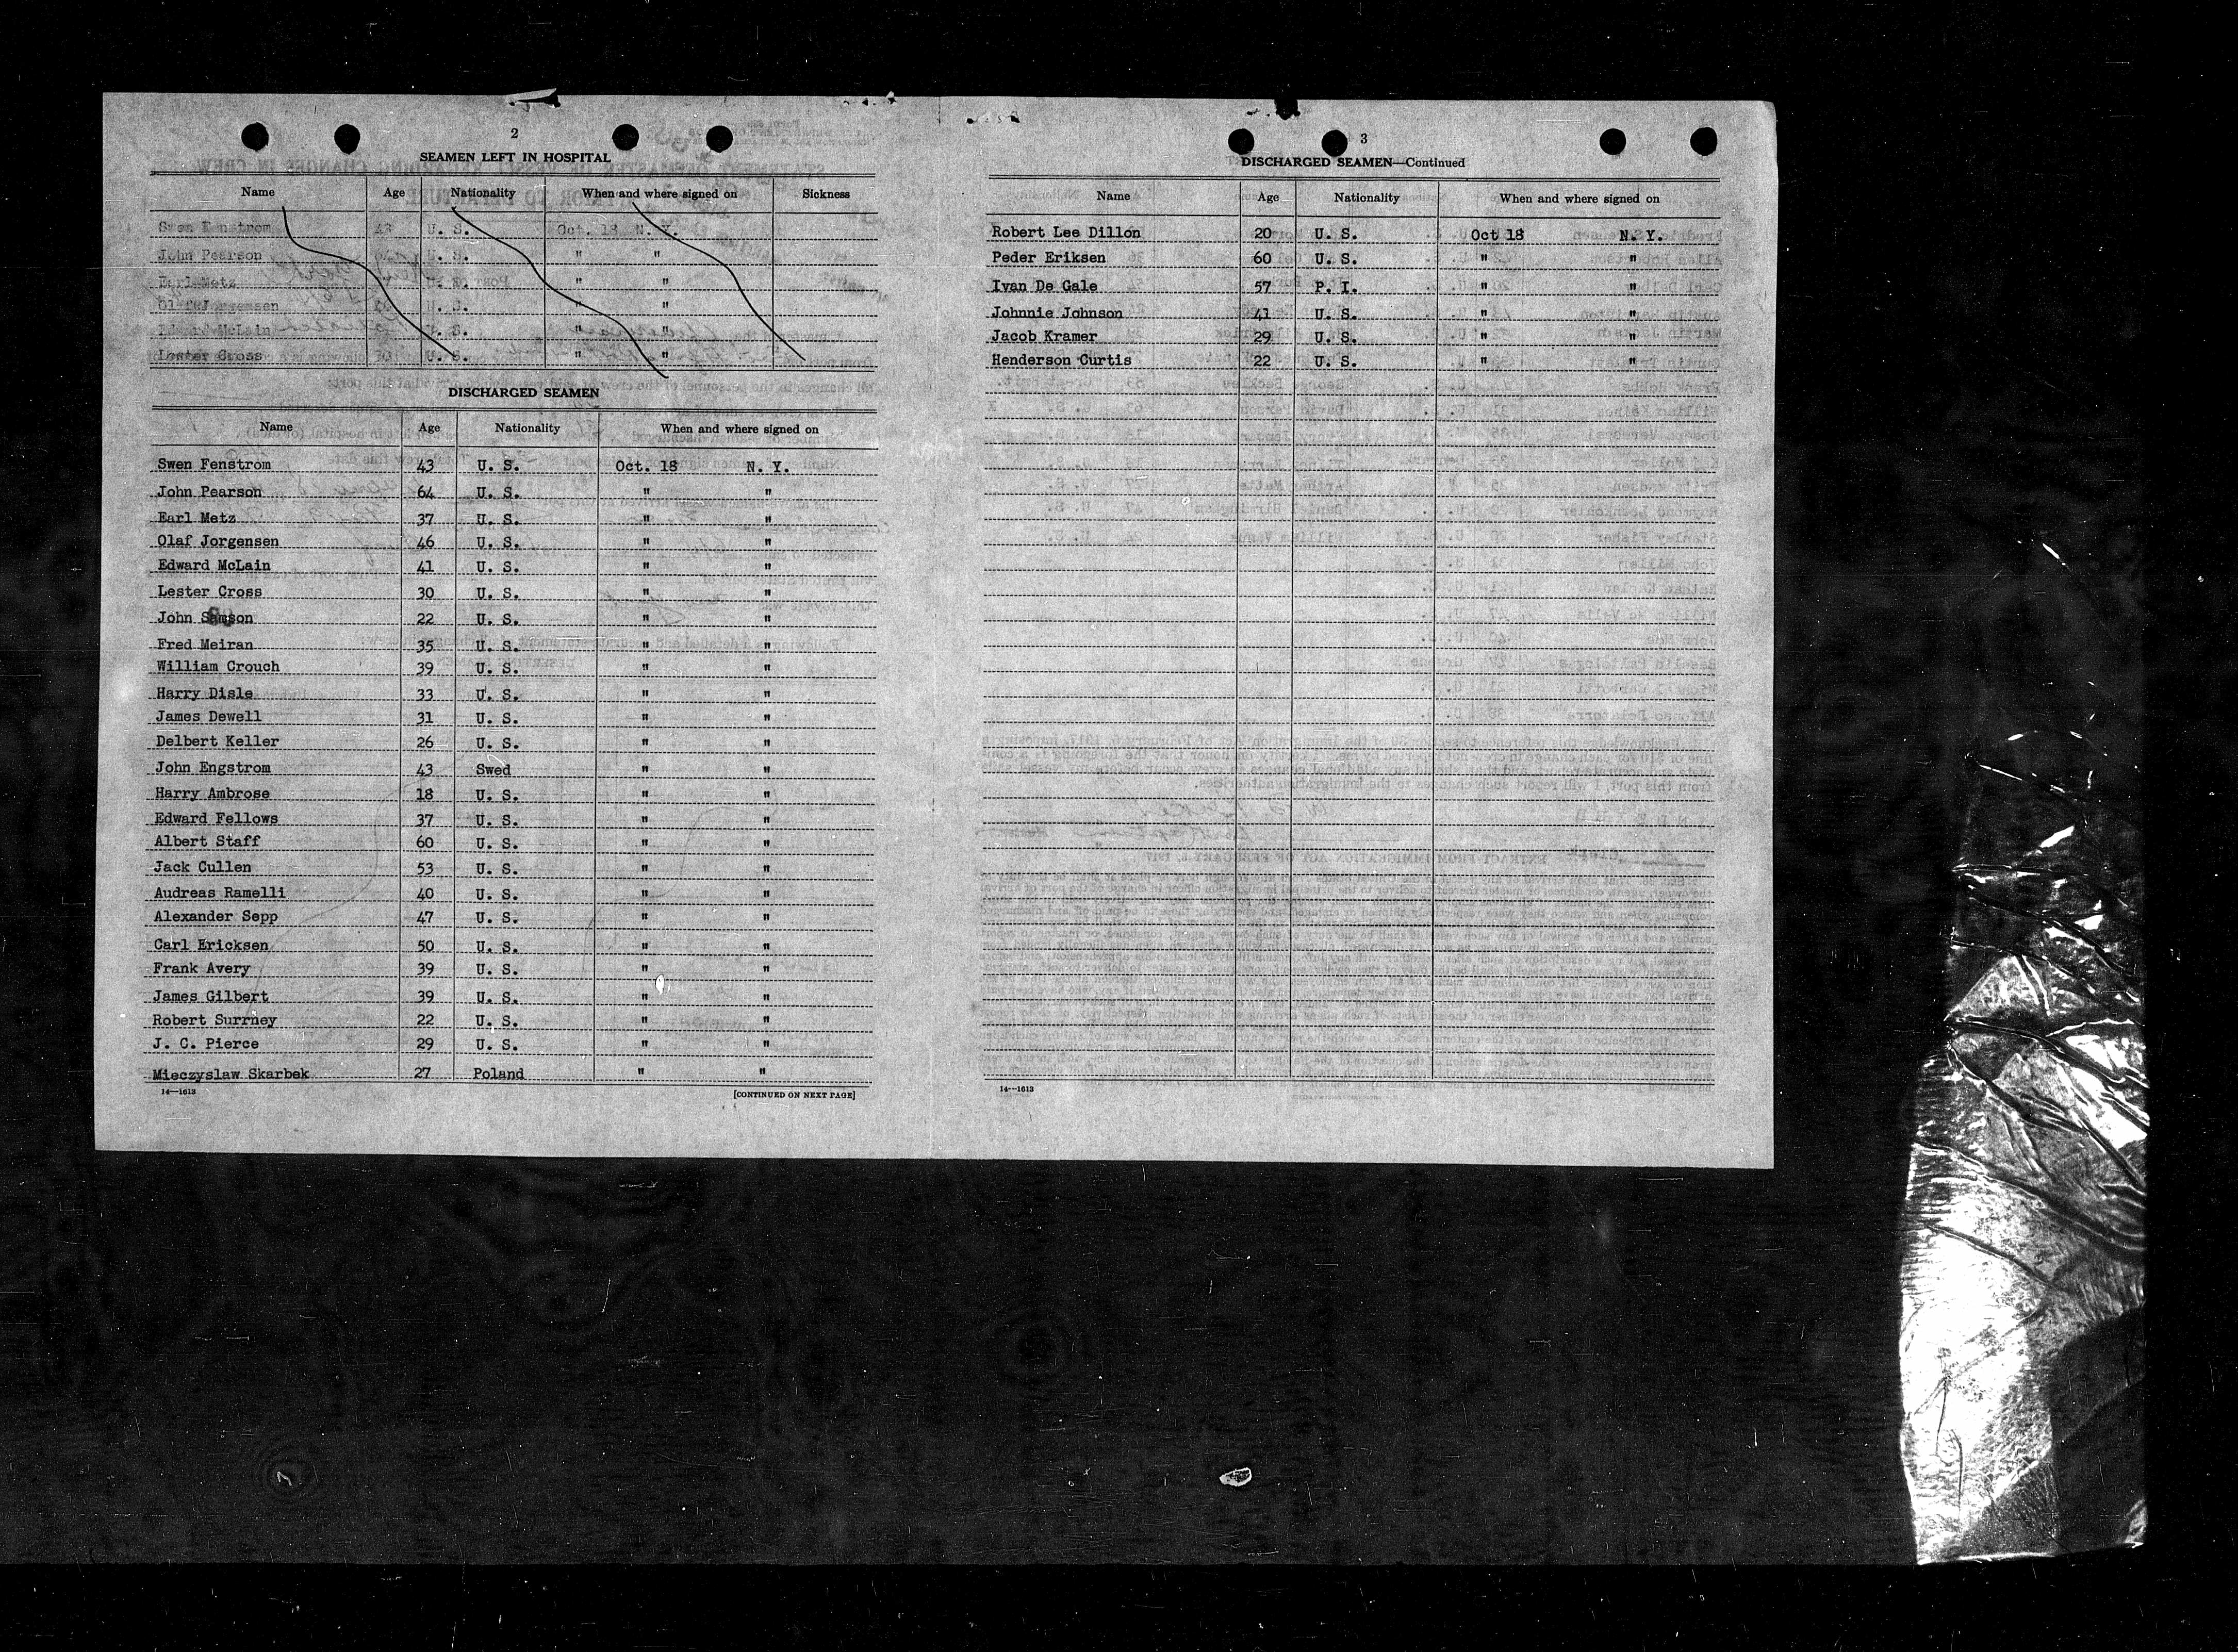 2
SEAMEN LEFT IN HOSPITAL
Name Age Nationality When and where signed on Sickness
Swen Fenstrom 43 U. S. Oct. 18 N. Y.
John Pearson U. S. " "
Earl Metz U. S. " "
Olaf Jorgensen U. S. " "
Edward McLain U. S. " "
Lester Cross 30 U. S. " "
DISCHARGED SEAMEN
Name Age Nationality When and where signed on
Swen Fenstrom 43 U. S. Oct. 18 N. Y.
John Pearson 64 U. S. " "
Earl Metz 37 U. S. " "
Olaf Jorgensen 46 U. S. " "
Edward McLain 41 U. S. " "
Lester Cross 30 U. S. " "
John Samson 22 U. S. " "
Fred Meiran 35 U. S. " "
William Crouch 39 U. S. " "
Harry Disle 33 U. S. " "
James Dewell 31 U. S. " "
Delbert Keller 26 U. S. " "
John Engstrom 43 Swed " "
Harry Ambrose 18 U. S. " "
Edward Fellows 37 U. S. " "
Albert Staff 60 U. S. " "
Jack Cullen 53 U. S. " "
Audreas Ramelli 40 U. S. " "
Alexander Sepp 47 U. S. " "
Carl Ericksen 50 U. S. " "
Frank Avery 39 U. S. " "
James Gilbert 39 U. S. " "
Robert Surrney 22 U. S. " "
J. C. Pierce 29 U. S. " "
Mieczyslaw Skarbek 27 Poland " "
14—1613 [CONTINUED ON NEXT PAGE]
3
DISCHARGED SEAMEN—Continued
Name Age Nationality When and where signed on
Robert Lee Dillon 20 U. S. Oct 18 N. Y.
Peder Eriksen 60 U. S. " "
Ivan De Gale 57 P. I. " "
Johnnie Johnson 41 U. S. " "
Jacob Kramer 29 U. S. " "
Henderson Curtis 22 U. S. " "
14—1613